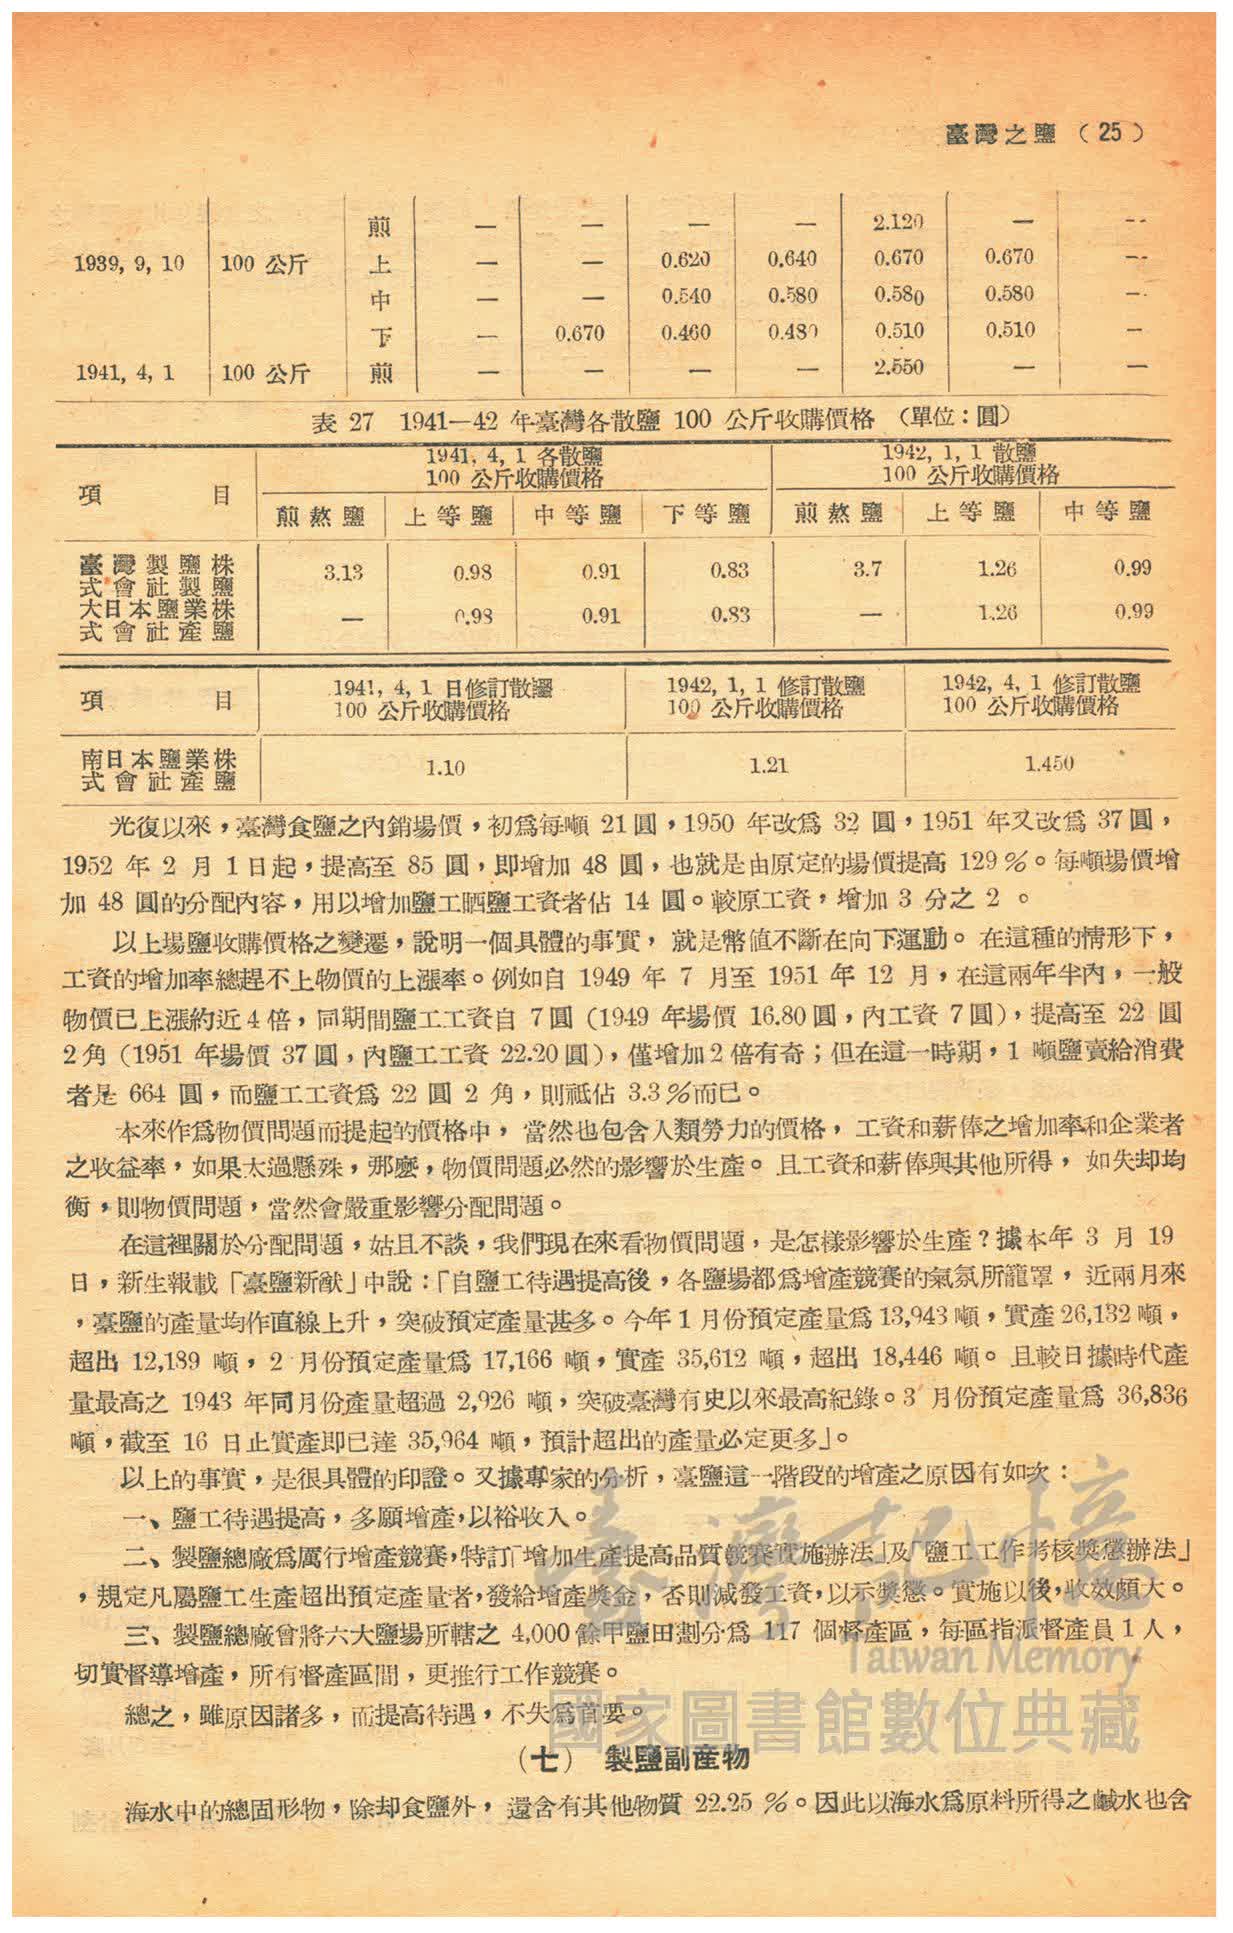 臺灣之鹽（25）
煎 — — — — 2.120 — —
1939, 9, 10 100 公斤 上 — — 0.620 0.640 0.670 0.670 —
中 — — 0.540 0.580 0.580 0.580 —
下 — 0.670 0.460 0.480 0.510 0.510 —
1941, 4, 1 100 公斤 煎 — — — — 2.550 — —
表 27 1941—42 年臺灣各散鹽 100 公斤收購價格 （單位：圓）
項目 1941, 4, 1 各散鹽 1942, 1, 1 散鹽
100 公斤收購價格 100 公斤收購價格
煎熬鹽 上等鹽 中等鹽 下等鹽 煎熬鹽 上等鹽 中等鹽
臺灣製鹽株
式會社製鹽 3.13 0.98 0.91 0.83 3.7 1.26 0.99
大日本鹽業株
式會社產鹽 — 0.98 0.91 0.83 — 1.26 0.99
項目 1941, 4, 1 日修訂散鹽 1942, 1, 1 修訂散鹽 1942, 4, 1 修訂散鹽
100 公斤收購價格 100 公斤收購價格 100 公斤收購價格
南日本鹽業株
式會社產鹽 1.10 1.21 1.450
光復以來，臺灣食鹽之內銷場價，初爲每噸 21 圓，1950 年改爲 32 圓，1951 年又改爲 37 圓，
1952 年 2 月 1 日起，提高至 85 圓，即增加 48 圓，也就是由原定的場價提高 129 %。每噸場價增
加 48 圓的分配內容，用以增加鹽工晒鹽工資者佔 14 圓。較原工資，增加 3 分之 2 。
以上場鹽收購價格之變遷，說明一個具體的事實， 就是幣值不斷在向下運動。在這種的情形下，
工資的增加率總趕不上物價的上漲率。例如自 1949 年 7 月至 1951 年 12 月，在這兩年半內，一般
物價已上漲約近 4 倍，同期間鹽工工資自 7 圓 (1949 年場價 16.80 圓，內工資 7 圓)，提高至 22 圓
2 角 (1951 年場價 37 圓，內鹽工工資 22.20 圓)，僅增加 2 倍有奇；但在這一時期，1 噸鹽賣給消費
者是 664 圓，而鹽工工資爲 22 圓 2 角，則祗佔 3.3 %而已。
本來作爲物價問題而提起的價格中， 當然也包含人類勞力的價格， 工資和薪俸之增加率和企業者
之收益率，如果太過懸殊，那麽，物價問題必然的影響於生產。且工資和薪俸與其他所得， 如失却均
衡，則物價問題，當然會嚴重影響分配問題。
在這裡關於分配問題，姑且不談，我們現在來看物價問題，是怎樣影響於生產？據本年 3 月 19
日，新生報載「臺鹽新猷」中說：「自鹽工待遇提高後，各鹽場都爲增產競賽的氣氛所籠罩， 近兩月來
，臺鹽的產量均作直線上升，突破預定產量甚多。今年 1 月份預定產量爲 13,943 噸，實產 26,132 噸，
超出 12,189 噸， 2 月份預定產量爲 17,166 噸，實產 35,612 噸，超出 18,446 噸。 且較日據時代產
量最高之 1943 年同月份產量超過 2,926 噸，突破臺灣有史以來最高紀錄。3 月份預定產量爲 36,836
噸，截至 16 日止實產即已達 35,964 噸，預計超出的產量必定更多」。
以上的事實，是很具體的印證。又據專家的分析，臺鹽這一階段的增產之原因有如次：
一、鹽工待遇提高，多願增產，以裕收入。
二、製鹽總廠爲厲行增產競賽，特訂「增加生產提高品質競賽實施辦法」及「鹽工工作考核獎懲辦法」
，規定凡屬鹽工生產超出預定產量者，發給增產獎金，否則減發工資，以示獎懲。實施以後，收效頗大。
三、製鹽總廠曾將六大鹽場所轄之 4,000 餘甲鹽田劃分爲 117 個督產區，每區指派督產員 1 人，
切實督導增產，所有督產區間，更推行工作競賽。
總之，雖原因諸多，而提高待遇，不失爲首要。
（七） 製鹽副產物
海水中的總固形物，除却食鹽外， 還含有其他物質 22.25 %。因此以海水爲原料所得之鹹水也含
臺灣記憶
Taiwan Memory
國家圖書館數位典藏